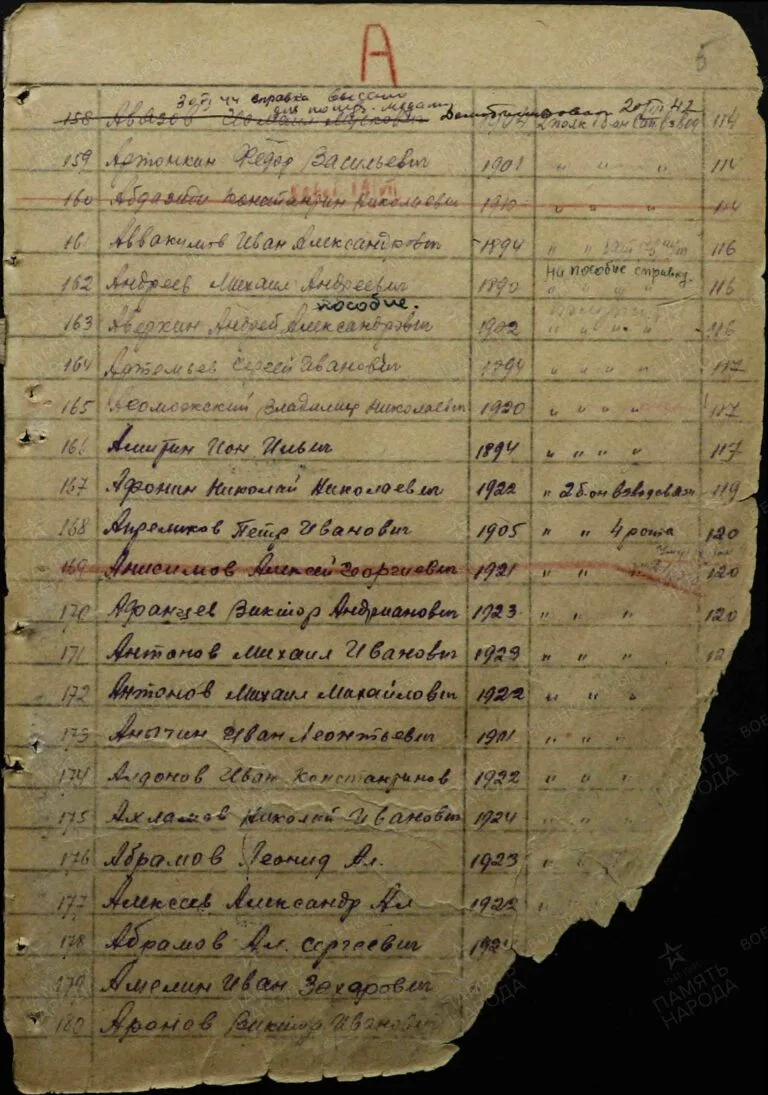 А
5
30/VI 44 справка выслана
для получ. медали
158 Авязов Измаил Демобилизован 20/VII 42
1904 2 полк 1 б-он Сап взвод 114
159 Артонкин Фёдор Васильевич 1901 " " " 114
160 Константин Николаевич 1910 " " " 114
161 Аввакумов Иван Александрович 1894 " " 116
на пособие справку.
162 Андреев Михаил Андреевич 1890 " " " " 116
пособие.
163 Аведкин Андрей Александрович 1902 " " " " 116
164 Артемьев Сергей Иванович 1894 " " " " 117
165 Владимир Николаевич 1920 " " " " 117
166 Амитин Ион Ильич 1894 " " " " 117
167 Афонин Николай Николаевич 1922 " 2 б-он 119
168 Апреликов Петр Иванович 1905 " " 4 рота 120
169 Анисимов Алексей Георгиевич 1921 " " " 120
170 Афанцев Виктор Андрианович 1923 " " " 120
171 Антонов Михаил Иванович 1923 " " " 12
172 Антонов Михаил Михайлович 1922 " " "
173 Анычин Иван Леонтьевич 1901 " " "
174 Алдонов Иван Константинов 1922 " " "
175 Ахламов Николай Иванович 1924 " " "
176 Абрамов Леонид Ал. 1923 " "
177 Алексеев Александр Ал 1922 "
178 Абрамов Ал. Сергеевич 192
179 Амелин Иван Захарович
180 Аронов Виктор Иванович
ПАМЯТЬ
НАРОДА